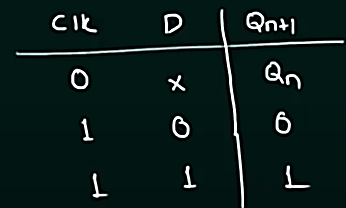 Clk D Qn+1
0 x Qn
1 0 0
1 1 1